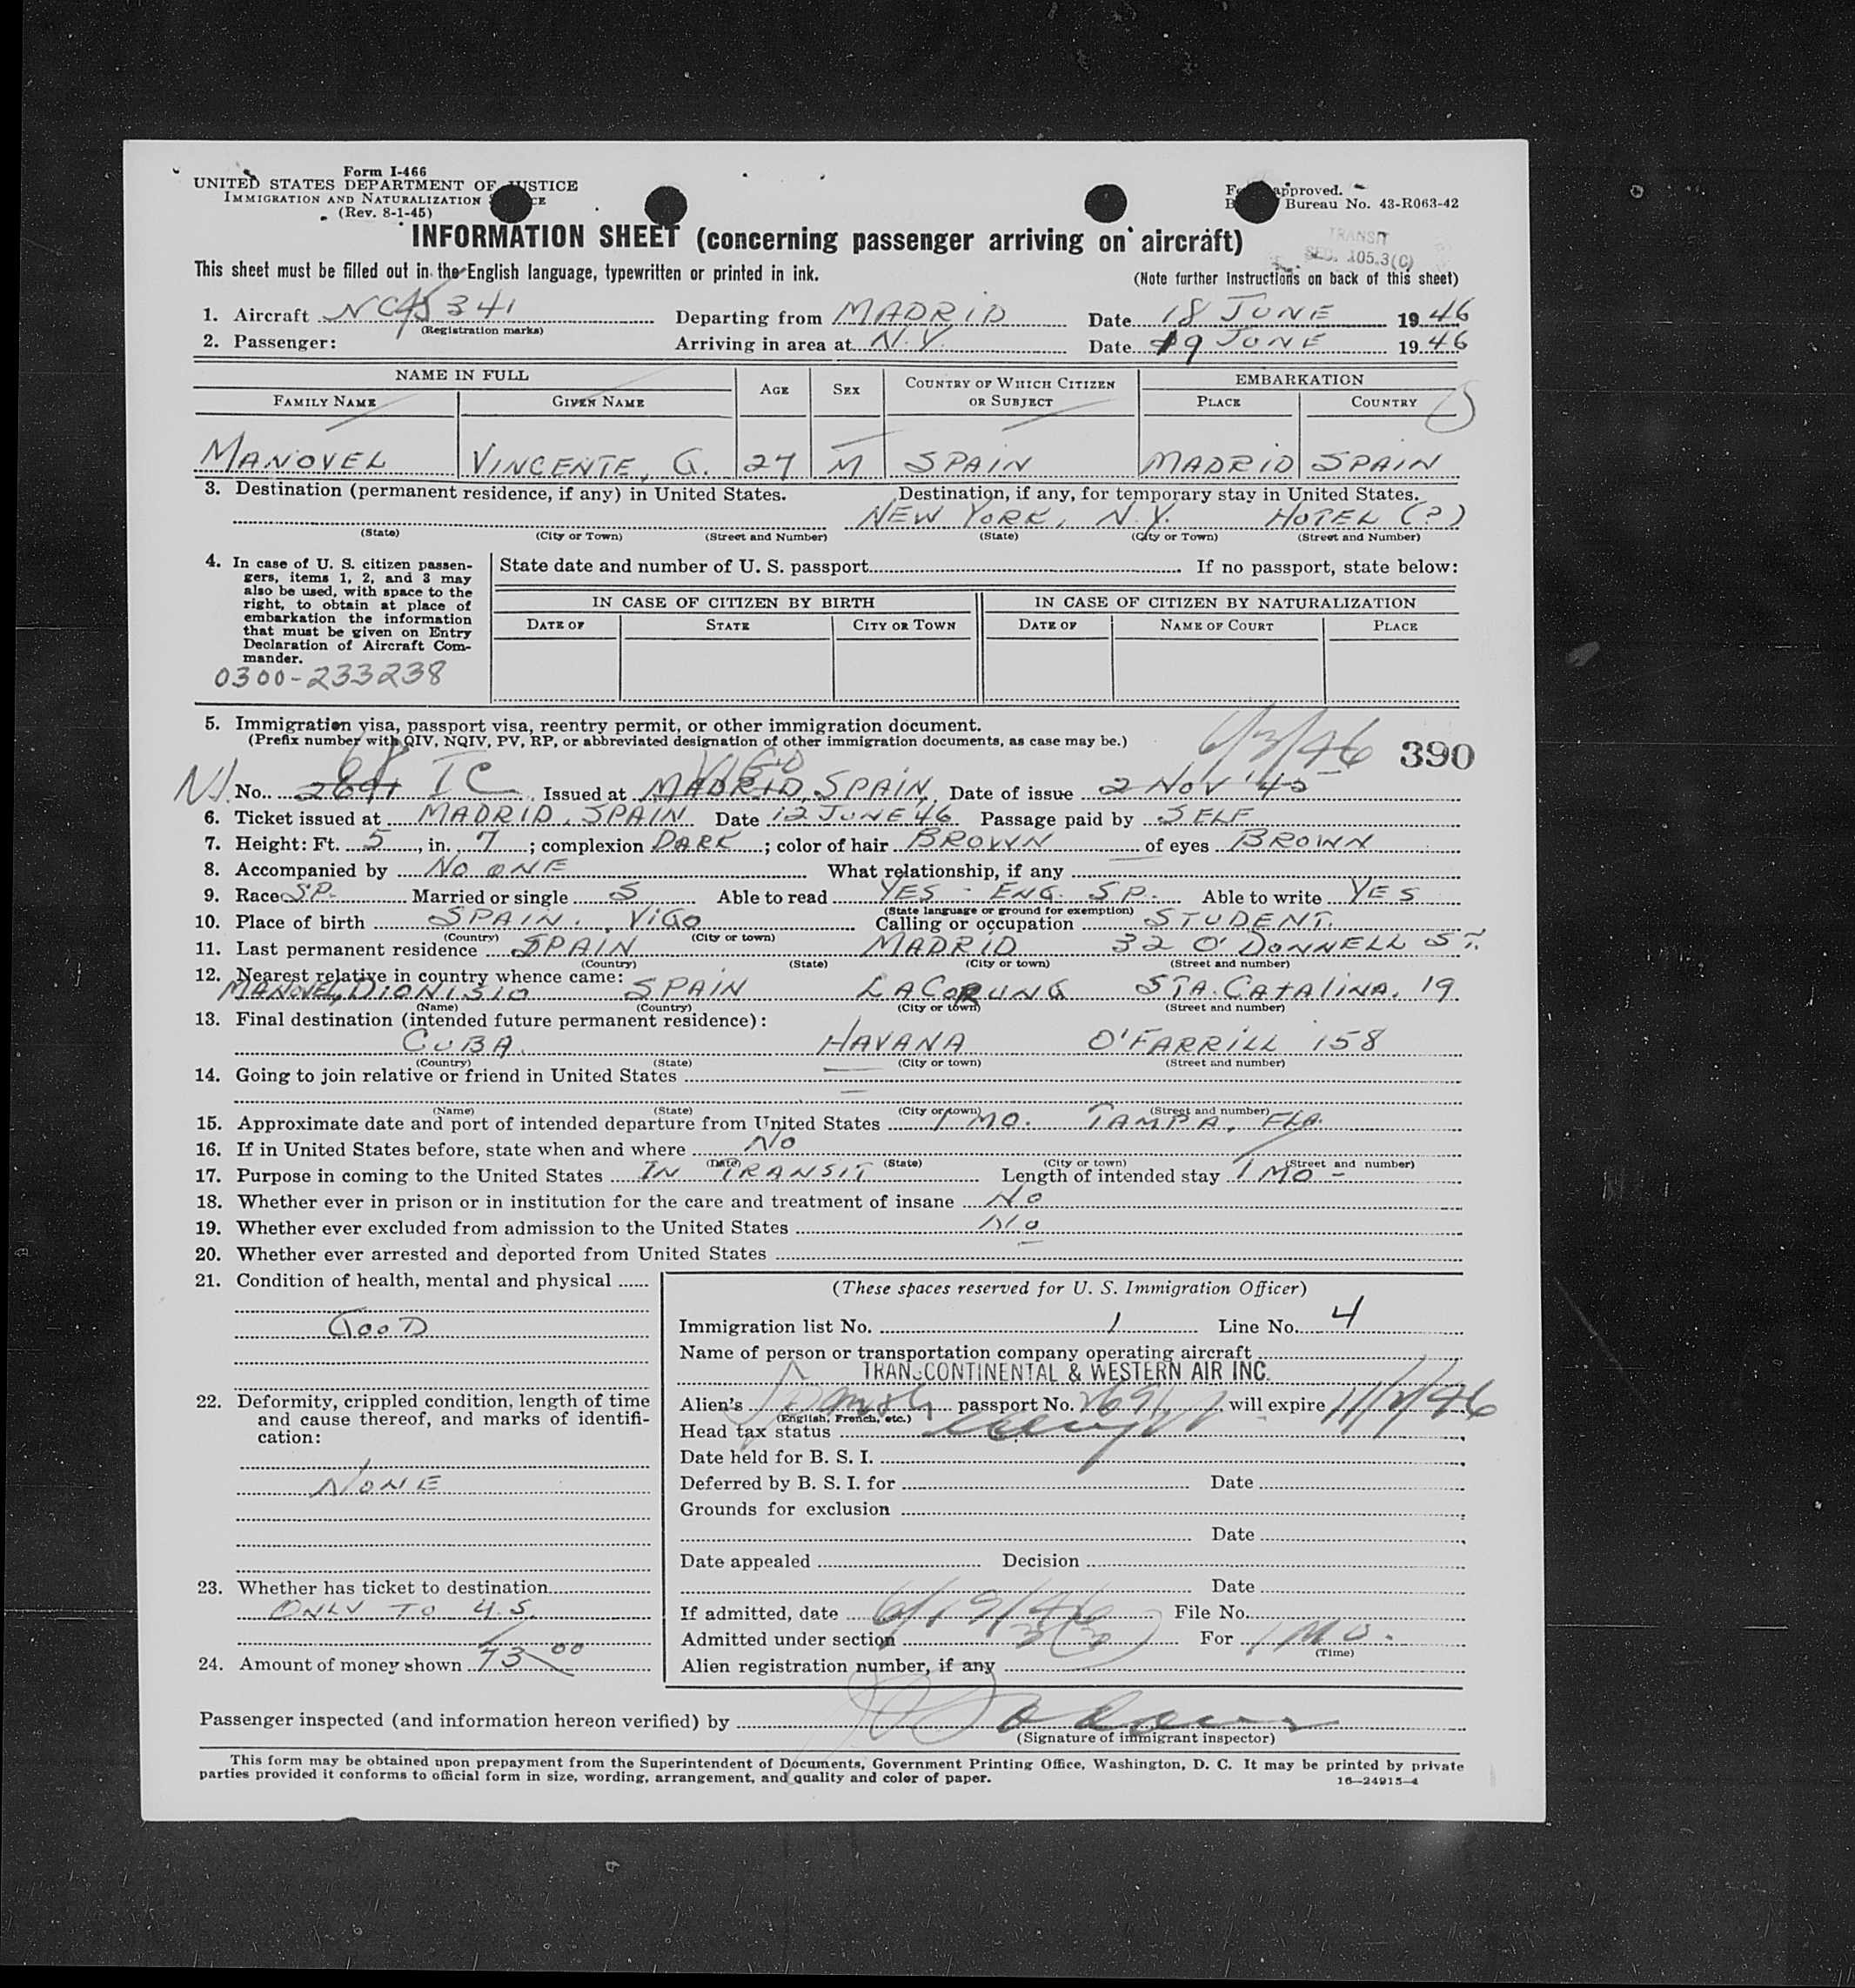 Form I-466
UNITED STATES DEPARTMENT OF JUSTICE
IMMIGRATION AND NATURALIZATION
(Rev. 8-1-45)
approved.
Bureau No. 43-R063-42
INFORMATION SHEET (concerning passenger arriving on aircraft)
TRANSIT
SEC. 105.3(C)
This sheet must be filled out in the English language, typewritten or printed in ink. (Note further instructions on back of this sheet)
1. Aircraft NC45341 Departing from MADRID Date 18 JUNE 1946
(Registration marks)
2. Passenger: Arriving in area at N.Y. Date 19 JUNE 1946
NAME IN FULL AGE SEX COUNTRY OF WHICH CITIZEN OR SUBJECT EMBARKATION
FAMILY NAME GIVEN NAME PLACE COUNTRY
MANOVEL VINCENTE, G. 27 M SPAIN MADRID SPAIN
3. Destination (permanent residence, if any) in United States. Destination, if any, for temporary stay in United States.
NEW YORK, N.Y. HOTEL (?)
(State) (City or Town) (Street and Number) (State) (City or Town) (Street and Number)
4. In case of U. S. citizen passen-
gers, items 1, 2, and 3 may
also be used, with space to the
right, to obtain at place of
embarkation the information
that must be given on Entry
Declaration of Aircraft Com-
mander.
0300-233238
State date and number of U. S. passport If no passport, state below:
IN CASE OF CITIZEN BY BIRTH IN CASE OF CITIZEN BY NATURALIZATION
DATE OF STATE CITY OR TOWN DATE OF NAME OF COURT PLACE
5. Immigration visa, passport visa, reentry permit, or other immigration document.
(Prefix number with QIV, NQIV, PV, RP, or abbreviated designation of other immigration documents, as case may be.)
6/3/46 390
68 VIGO
No. 2691 TC Issued at MADRID, SPAIN Date of issue 2 NOV '45
6. Ticket issued at MADRID, SPAIN Date 12 JUNE 46 Passage paid by SELF
7. Height: Ft. 5, in. 7; complexion DARK; color of hair BROWN of eyes BROWN
8. Accompanied by NO ONE What relationship, if any
9. Race SP. Married or single S Able to read YES - ENG. SP. Able to write YES
(State language or ground for exemption)
10. Place of birth SPAIN, VIGO Calling or occupation STUDENT.
(Country) (City or town)
11. Last permanent residence SPAIN MADRID 32 O'DONNELL ST.
(Country) (State) (City or town) (Street and number)
12. Nearest relative in country whence came:
MANOVEL, DIONISIO SPAIN LACORUNA STA. CATALINA, 19
(Name) (Country) (City or town) (Street and number)
13. Final destination (intended future permanent residence):
CUBA HAVANA O'FARRILL 158
(Country) (State) (City or town) (Street and number)
14. Going to join relative or friend in United States
(Name) (State) (City or town) (Street and number)
15. Approximate date and port of intended departure from United States 1 MO. TAMPA, FLA.
16. If in United States before, state when and where NO
(Date) (State) (City or town) (Street and number)
17. Purpose in coming to the United States IN TRANSIT Length of intended stay 1 MO -
18. Whether ever in prison or in institution for the care and treatment of insane NO
19. Whether ever excluded from admission to the United States NO
20. Whether ever arrested and deported from United States
21. Condition of health, mental and physical
GOOD
22. Deformity, crippled condition, length of time
and cause thereof, and marks of identifi-
cation:
NONE
23. Whether has ticket to destination
ONLY TO U.S.
24. Amount of money shown 73 00
(These spaces reserved for U. S. Immigration Officer)
Immigration list No. 1 Line No. 4
Name of person or transportation company operating aircraft
TRANSCONTINENTAL & WESTERN AIR INC.
Alien's Spanish passport No. 2691, will expire 11/2/46
(English, French, etc.)
Head tax status
Date held for B. S. I.
Deferred by B. S. I. for Date
Grounds for exclusion
Date
Date appealed Decision
Date
If admitted, date 6/19/46 File No.
Admitted under section 3(3) For 1 MO.
(Time)
Alien registration number, if any
Passenger inspected (and information hereon verified) by
(Signature of immigrant inspector)
This form may be obtained upon prepayment from the Superintendent of Documents, Government Printing Office, Washington, D. C. It may be printed by private
parties provided it conforms to official form in size, wording, arrangement, and quality and color of paper.
16-24915-4